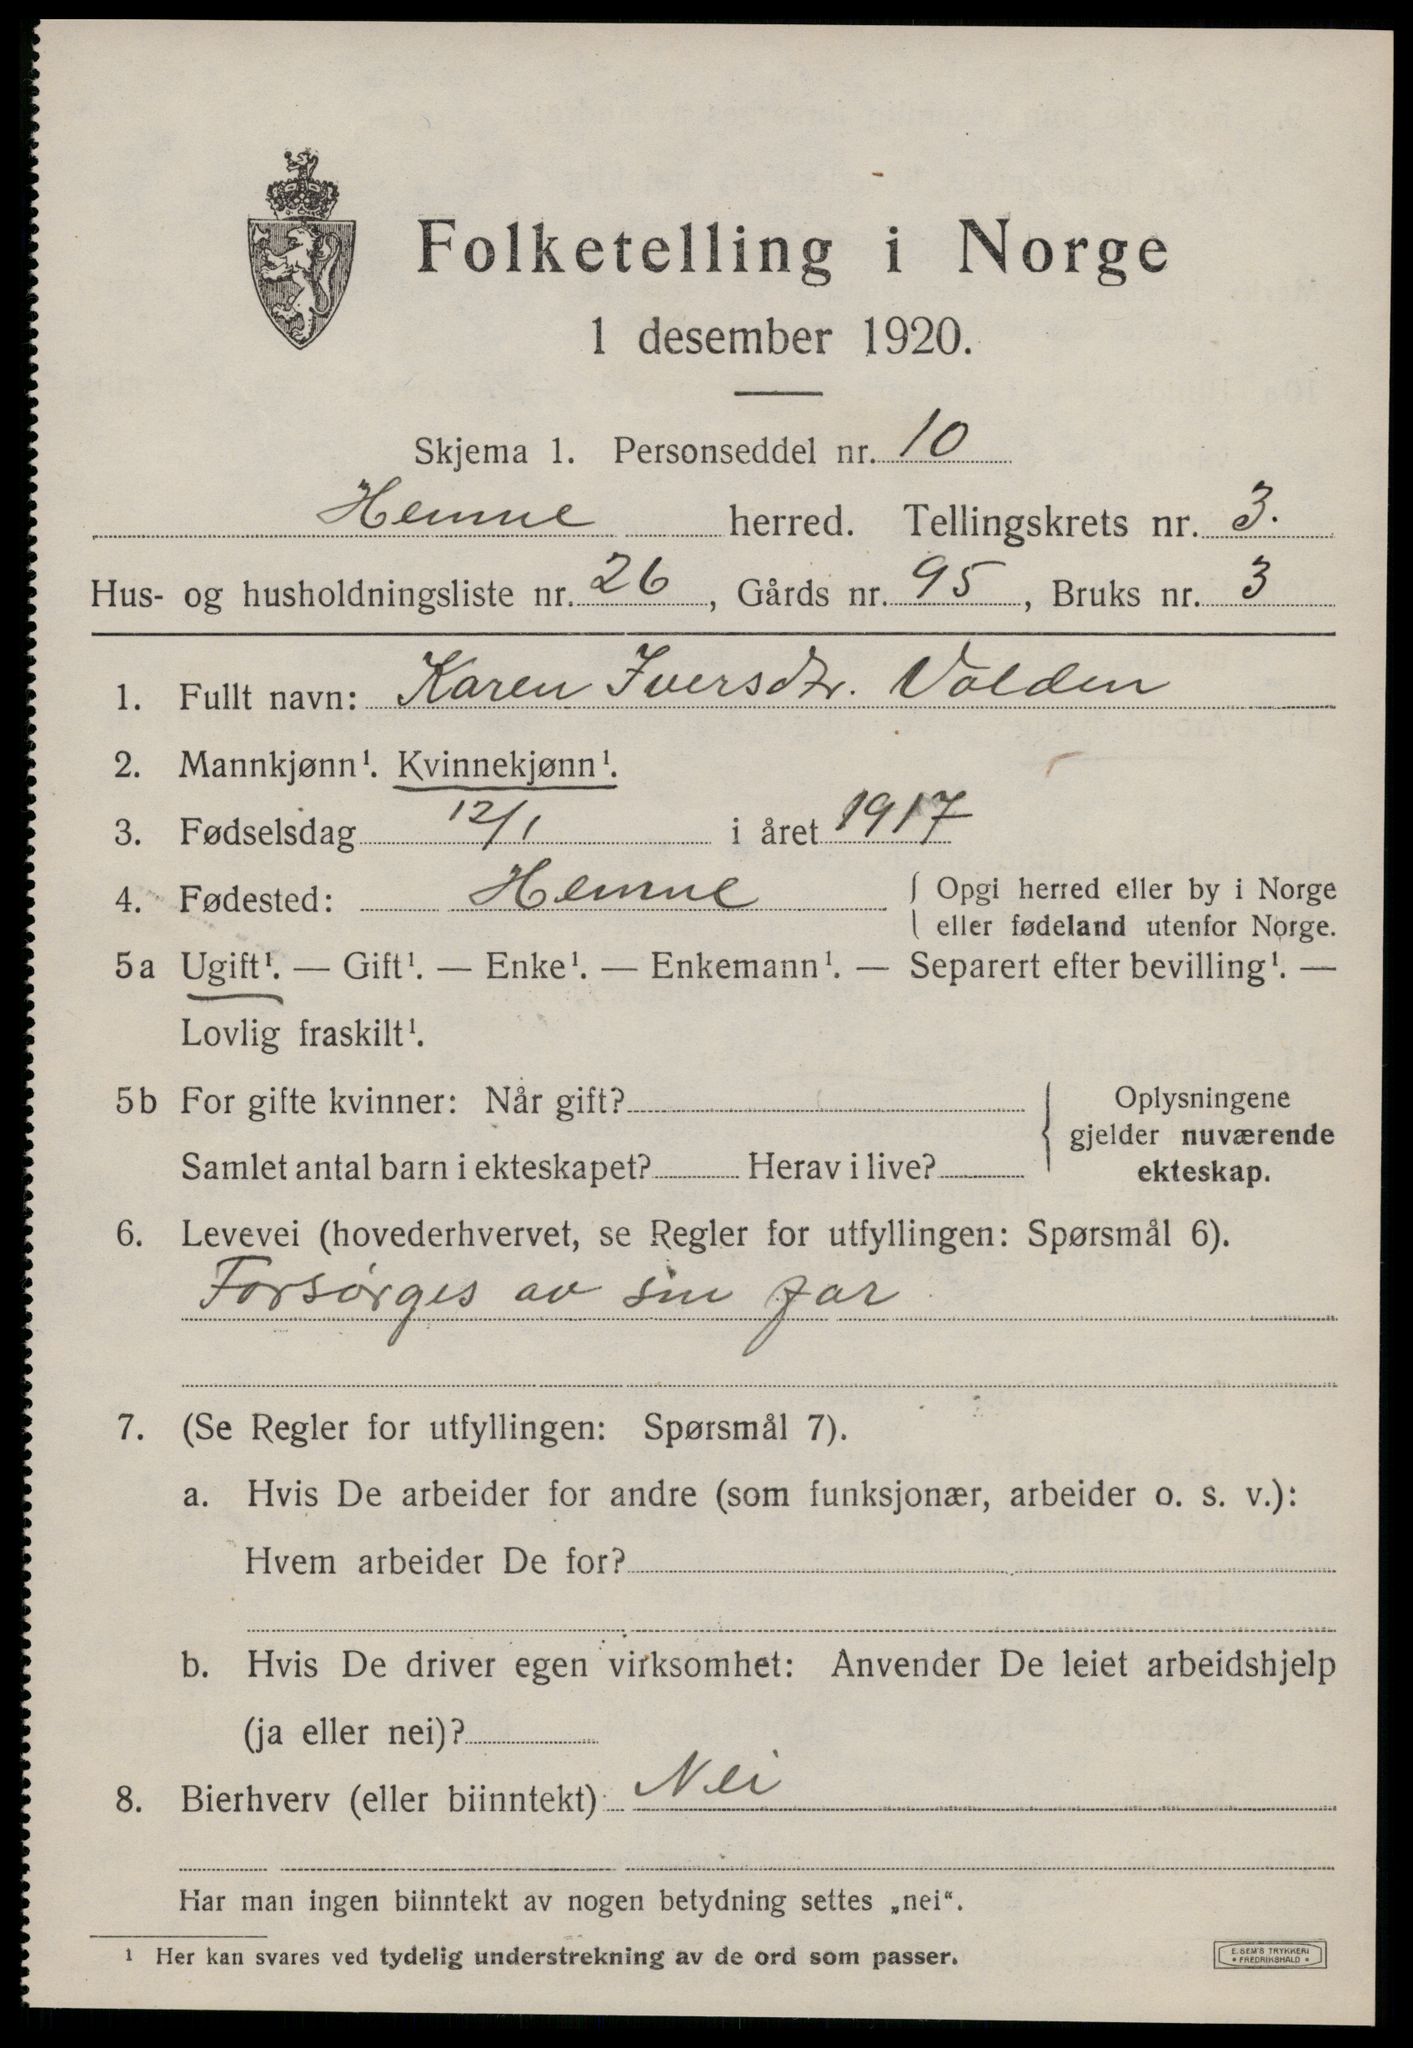 Folketelling i Norge
1 desember 1920.
Skjema 1. Personseddel nr. 10
Hemne herred. Tellingskrets nr. 3.
Hus- og husholdningsliste nr. 26, Gårds nr. 95, Bruks nr. 3
1. Fullt navn: Karen Iversdtr. Volden
2. Mannkjønn¹. Kvinnekjønn¹.
3. Fødselsdag 12/1 i året 1917
4. Fødested: Hemne { Opgi herred eller by i Norge
eller fødeland utenfor Norge.
5a Ugift¹. — Gift¹. — Enke¹. — Enkemann¹. — Separert efter bevilling¹. —
Lovlig fraskilt¹.
5b For gifte kvinner: Når gift?
Samlet antal barn i ekteskapet? Herav i live?
Oplysningene
gjelder nuværende
ekteskap.
6. Levevei (hovederhvervet, se Regler for utfyllingen: Spørsmål 6).
Forsørges av sin far
7. (Se Regler for utfyllingen: Spørsmål 7).
a. Hvis De arbeider for andre (som funksjonær, arbeider o. s. v.):
Hvem arbeider De for?
b. Hvis De driver egen virksomhet: Anvender De leiet arbeidshjelp
(ja eller nei)?
8. Bierhverv (eller biinntekt) Nei
Har man ingen biinntekt av nogen betydning settes „nei".
¹ Her kan svares ved tydelig understrekning av de ord som passer.
E. SEM'S TRYKKERI
• FREDRIKSHALD •